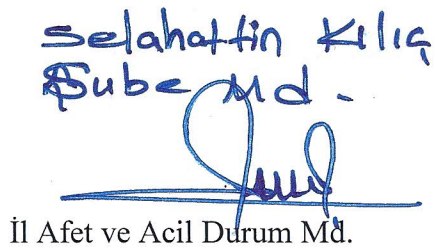 Selahattin Kılıç
Şube Md.
İl Afet ve Acil Durum Md.